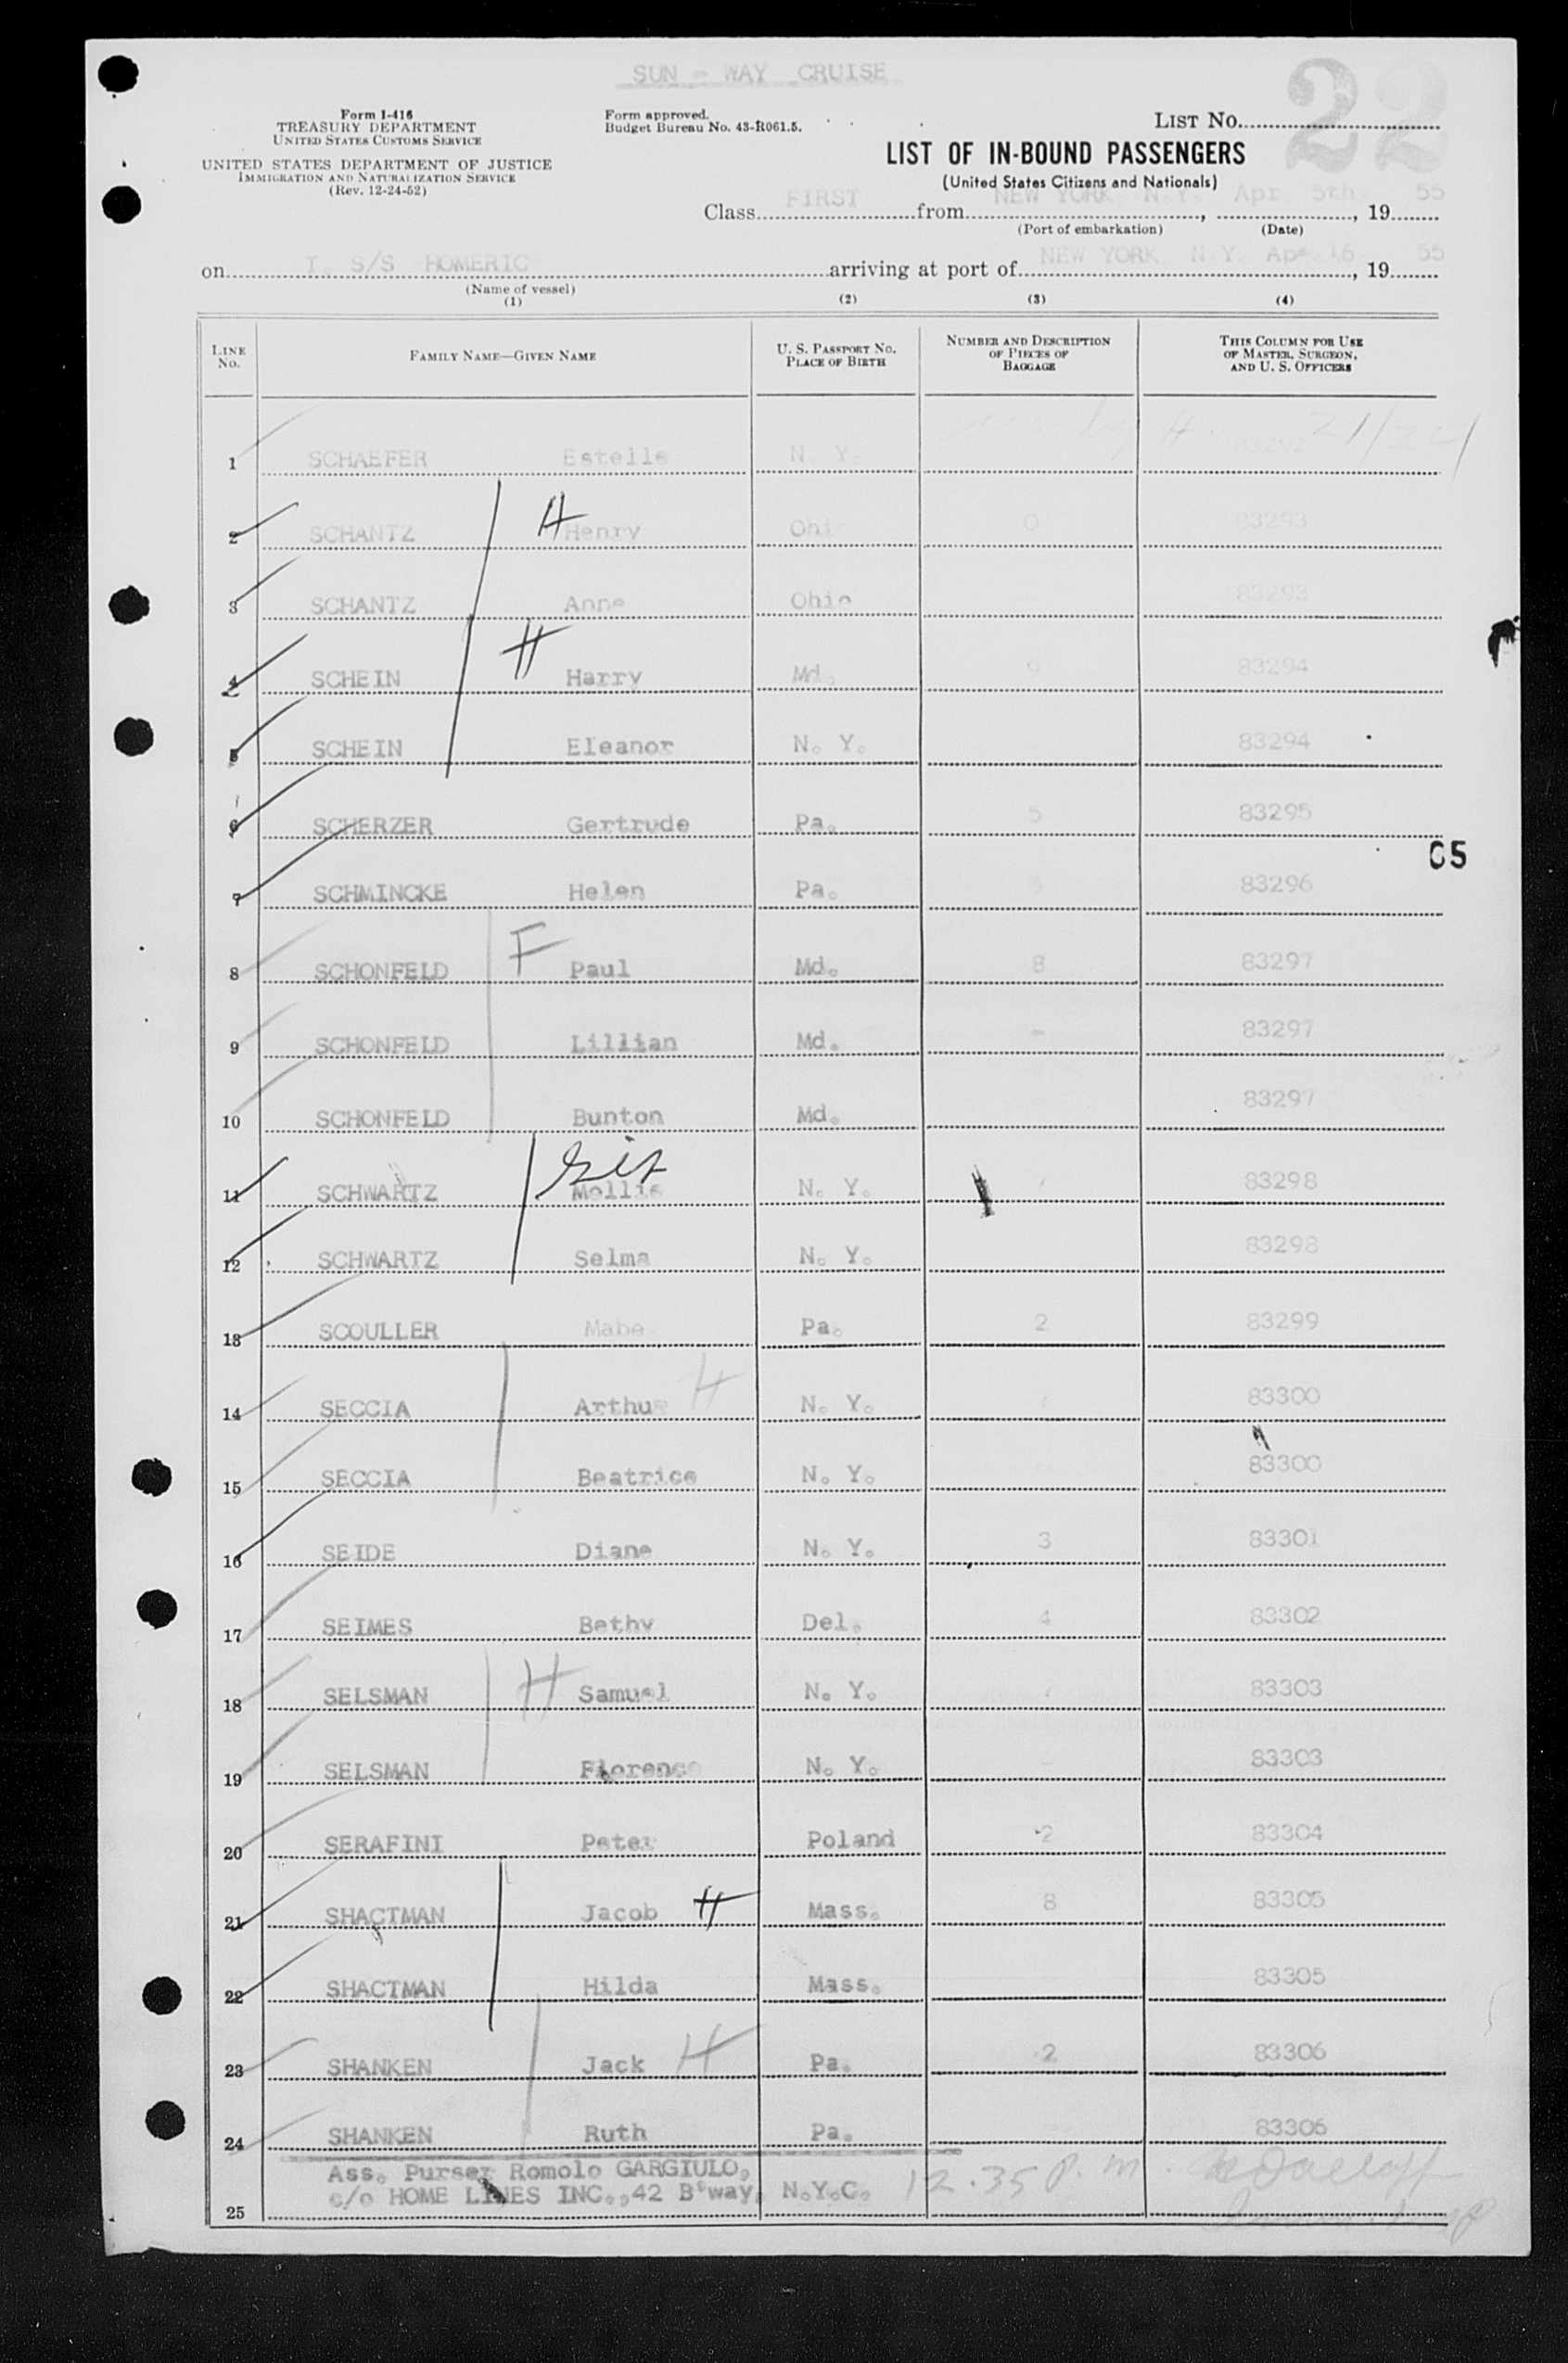 SUN - WAY CRUISE
22
Form I-416
TREASURY DEPARTMENT
UNITED STATES CUSTOMS SERVICE
UNITED STATES DEPARTMENT OF JUSTICE
IMMIGRATION AND NATURALIZATION SERVICE
(Rev. 12-24-52)
Form approved.
Budget Bureau No. 43-R061.5.
LIST NO.
LIST OF IN-BOUND PASSENGERS
(United States Citizens and Nationals)
Class FIRST from NEW YORK N.Y. , Apr 5th , 19 55
(Port of embarkation) (Date)
on T. S/S HOMERIC arriving at port of NEW YORK N.Y. Apr 16 , 19 55
(Name of vessel)
(1) (2) (3) (4)
LINE NO. FAMILY NAME—GIVEN NAME U. S. PASSPORT NO. PLACE OF BIRTH NUMBER AND DESCRIPTION OF PIECES OF BAGGAGE THIS COLUMN FOR USE OF MASTER, SURGEON, AND U. S. OFFICERS
1 SCHAEFER Estelle N. Y. 83292 21/24
2 SCHANTZ H Henry Ohi 83293
3 SCHANTZ Anne Ohio 83293
4 SCHEIN H Harry Md. 9 83294
5 SCHEIN Eleanor N. Y. 83294
6 SCHERZER Gertrude Pa. 5 83295
05
7 SCHMINCKE Helen Pa. 83296
8 SCHONFELD F Paul Md. 8 83297
9 SCHONFELD Lillian Md. - 83297
10 SCHONFELD Bunton Md. 83297
11 SCHWARTZ Sis Mollie N. Y. 83298
12 SCHWARTZ Selma N. Y. 83298
13 SCOULLER Mabe Pa. 2 83299
14 SECCIA Arthur H N. Y. 83300
15 SECCIA Beatrice N. Y. 83300
16 SEIDE Diane N. Y. 3 83301
17 SEIMES Bethy Del. 4 83302
18 SELSMAN H Samuel N. Y. 83303
19 SELSMAN Florence N. Y. 83303
20 SERAFINI Peter Poland 2 83304
21 SHACTMAN Jacob H Mass. 8 83305
22 SHACTMAN Hilda Mass. 83305
23 SHANKEN Jack H Pa. 2 83306
24 SHANKEN Ruth Pa. 83306
Ass. Purser Romolo GARGIULO,
c/o HOME LINES INC., 42 B'way, N.Y.C. 12.35 P. m.
25